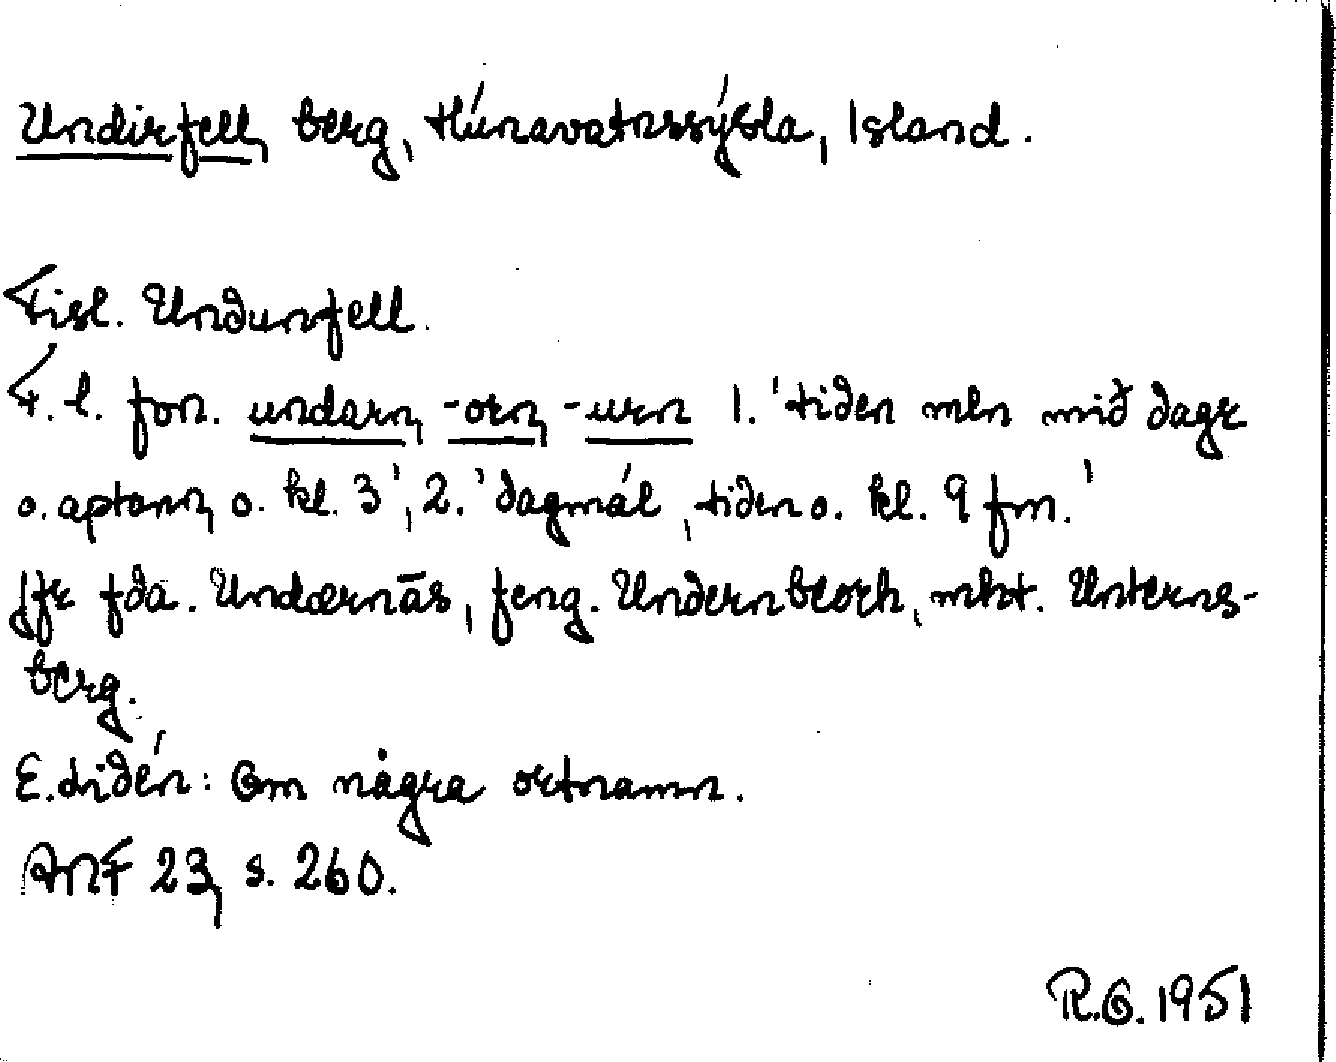 Undirfell, berg, Húnavatnssýsla, Island.
Fisl. Undunfell.
F. l. fon. undarn, -orn, -urn 1. 'tiden mln mið dagr
o. aptann, o. kl. 3', 2. 'dagmál, tiden o. kl. 9 fm.'
Jfr fda. Undærnās, feng. Undernbeorh, mht. Unterns-
berg.
E. Lidén: Om några ortnamn.
ANF 23, s. 260.
R.G. 1951